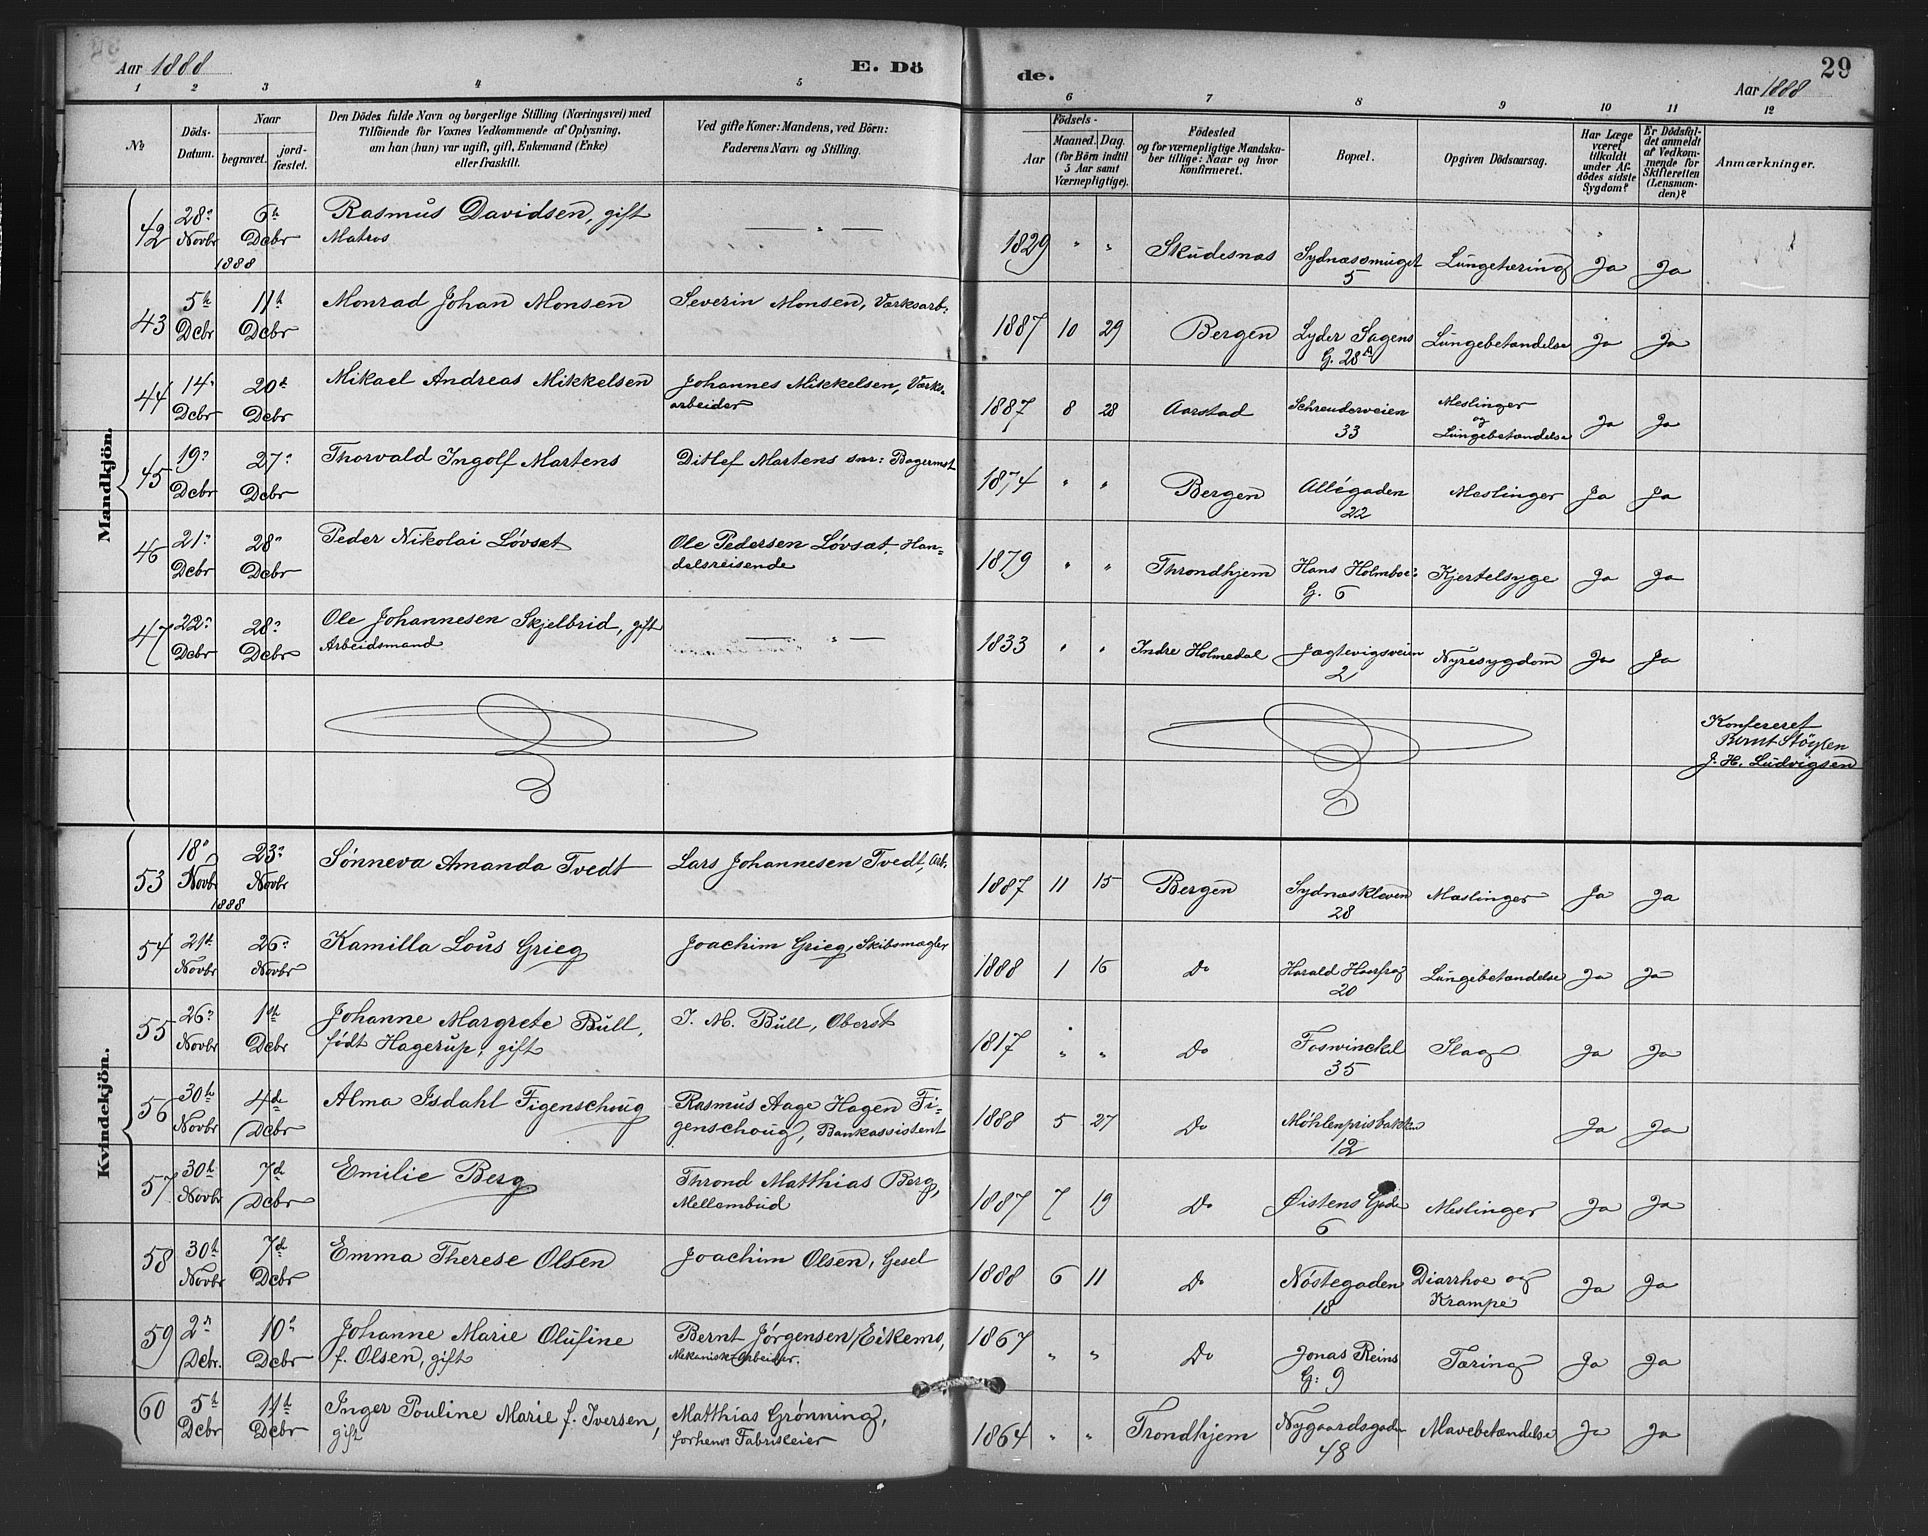 Aar 1888
E. Dö
de.
29
Aar 1888
1 2 3 4 5 6 7 8 9 10 11 12
No
Döds-Datum.
Naar
begravet.
jord-fæstet.
Den Dödes fulde Navn og borgerlige Stilling (Næringsvei) med
Tilföiende for Voxnes Vedkommende af Oplysning,
om han (hun) var ugift, gift, Enkemand (Enke)
eller fraskilt.
Ved gifte Koner: Mandens, ved Börn:
Faderens Navn og Stilling.
Födsels-
Aar
Maaned. Dag.
(for Börn indtil
5 Aar samt
Værnepligtige).
Födested
og for værnepligtige Mandska-
ber tillige: Naar og hvor
konfirmeret.
Bopæl.
Opgiven Dödsaarsag.
Har Læge
været
tilkaldt
under Af-
dödes sidste
Sygdom?
Er Dödsfal-
det anmeldt
af Vedkom-
mende for
Skifteretten
(Lensman-
den)?
Anmærkninger.
Mandkjön.
42 28de Novbr 1888 6te Dcbr Rasmus Davidsen, gift
Matros — " — 1829 " " Skudesnæs Sydnæssmuget 5 Lungetæring Ja Ja
43 5te Dcbr 11te Dcbr Monrad Johan Monsen Severin Monsen, Værksarb. 1887 10 29 Bergen Lyder Sagens G. 28A Lungebetændelse Ja Ja
44 14de Dcbr 20de Dcbr Mikael Andreas Mikkelsen Johannes Mikkelsen, Værks-
arbeider 1887 8 28 Aarstad Schreuderveien 33 Meslinger og Lungebetændelse Ja Ja
45 19de Dcbr 27de Dcbr Thorvald Ingolf Martens Ditlef Martens snr: Bagermst 1874 " " Bergen Allégaden 22 Meslinger Ja Ja
46 21de Dcbr 28de Dcbr Peder Nikolai Løvsæt Ole Pedersen Løvsæt, Han-
delsreisende 1879 " " Throndhjem Hans Holmboes G. 6 Kjertelsyge Ja Ja
47 22de Dcbr 28de Dcbr Ole Johannesen Skjelbrid, gift
Arbeidsmand — " — 1833 " " Indre Holmedal Jægtevigsveien 2 Nyresygdom Ja Ja
Konfereret
Bernt Støylen
J. H. Ludvigsen
Kvindekjön.
53 18de Novbr 1888 23de Novbr Sønneva Amanda Tvedt Lars Johannesen Tvedt, Arb. 1887 11 15 Bergen Sydnæskleven 28 Mæslinger Ja Ja
54 21de Novbr 26de Novbr Kamilla Lous Grieg Joachim Grieg, Skibsmægler 1888 1 16 Do Harald Haarfag 20 Lungebetændelse Ja Ja
55 26de Novbr 1ste Dcbr Johanne Margrete Bull,
født Hagerup, gift J. M. Bull, Oberst 1817 " " Do Foswinckel 35 Slag Ja Ja
56 30te Novbr 4de Dcbr Alma Isdahl Figenschoug Rasmus Aage Hagen Fi-
genschoug, Bankassistent 1888 5 27 Do Møhlenprisbakken 12 Ja Ja
57 30te Novbr 7de Dcbr Emilie Berg Thrond Matthias Berg,
Mellembud 1887 7 19 Do Øistens Gade 6 Meslinger Ja Ja
58 30te Novbr 7de Dcbr Emma Therese Olsen Joachim Olsen, Gesel 1888 6 11 Do Nøstegaden 18 Diarrhoe og Krampe Ja Ja
59 2den Dcbr. 10de Dcbr Johanne Marie Olufine
f. Olsen, gift Bernt Jørgensen Eikemo,
Mekanisk-Arbeider. 1867 " " Do Jonas Reins G: 9 Tæring Ja Ja
60 5te Dcbr 11te Dcbr Inger Pouline Marie f. Iversen,
gift Matthias Grønning,
forhenv Fabrikeier 1864 " " Trondhjem Nygaardsgaden 48 Mavebetændelse Ja Ja